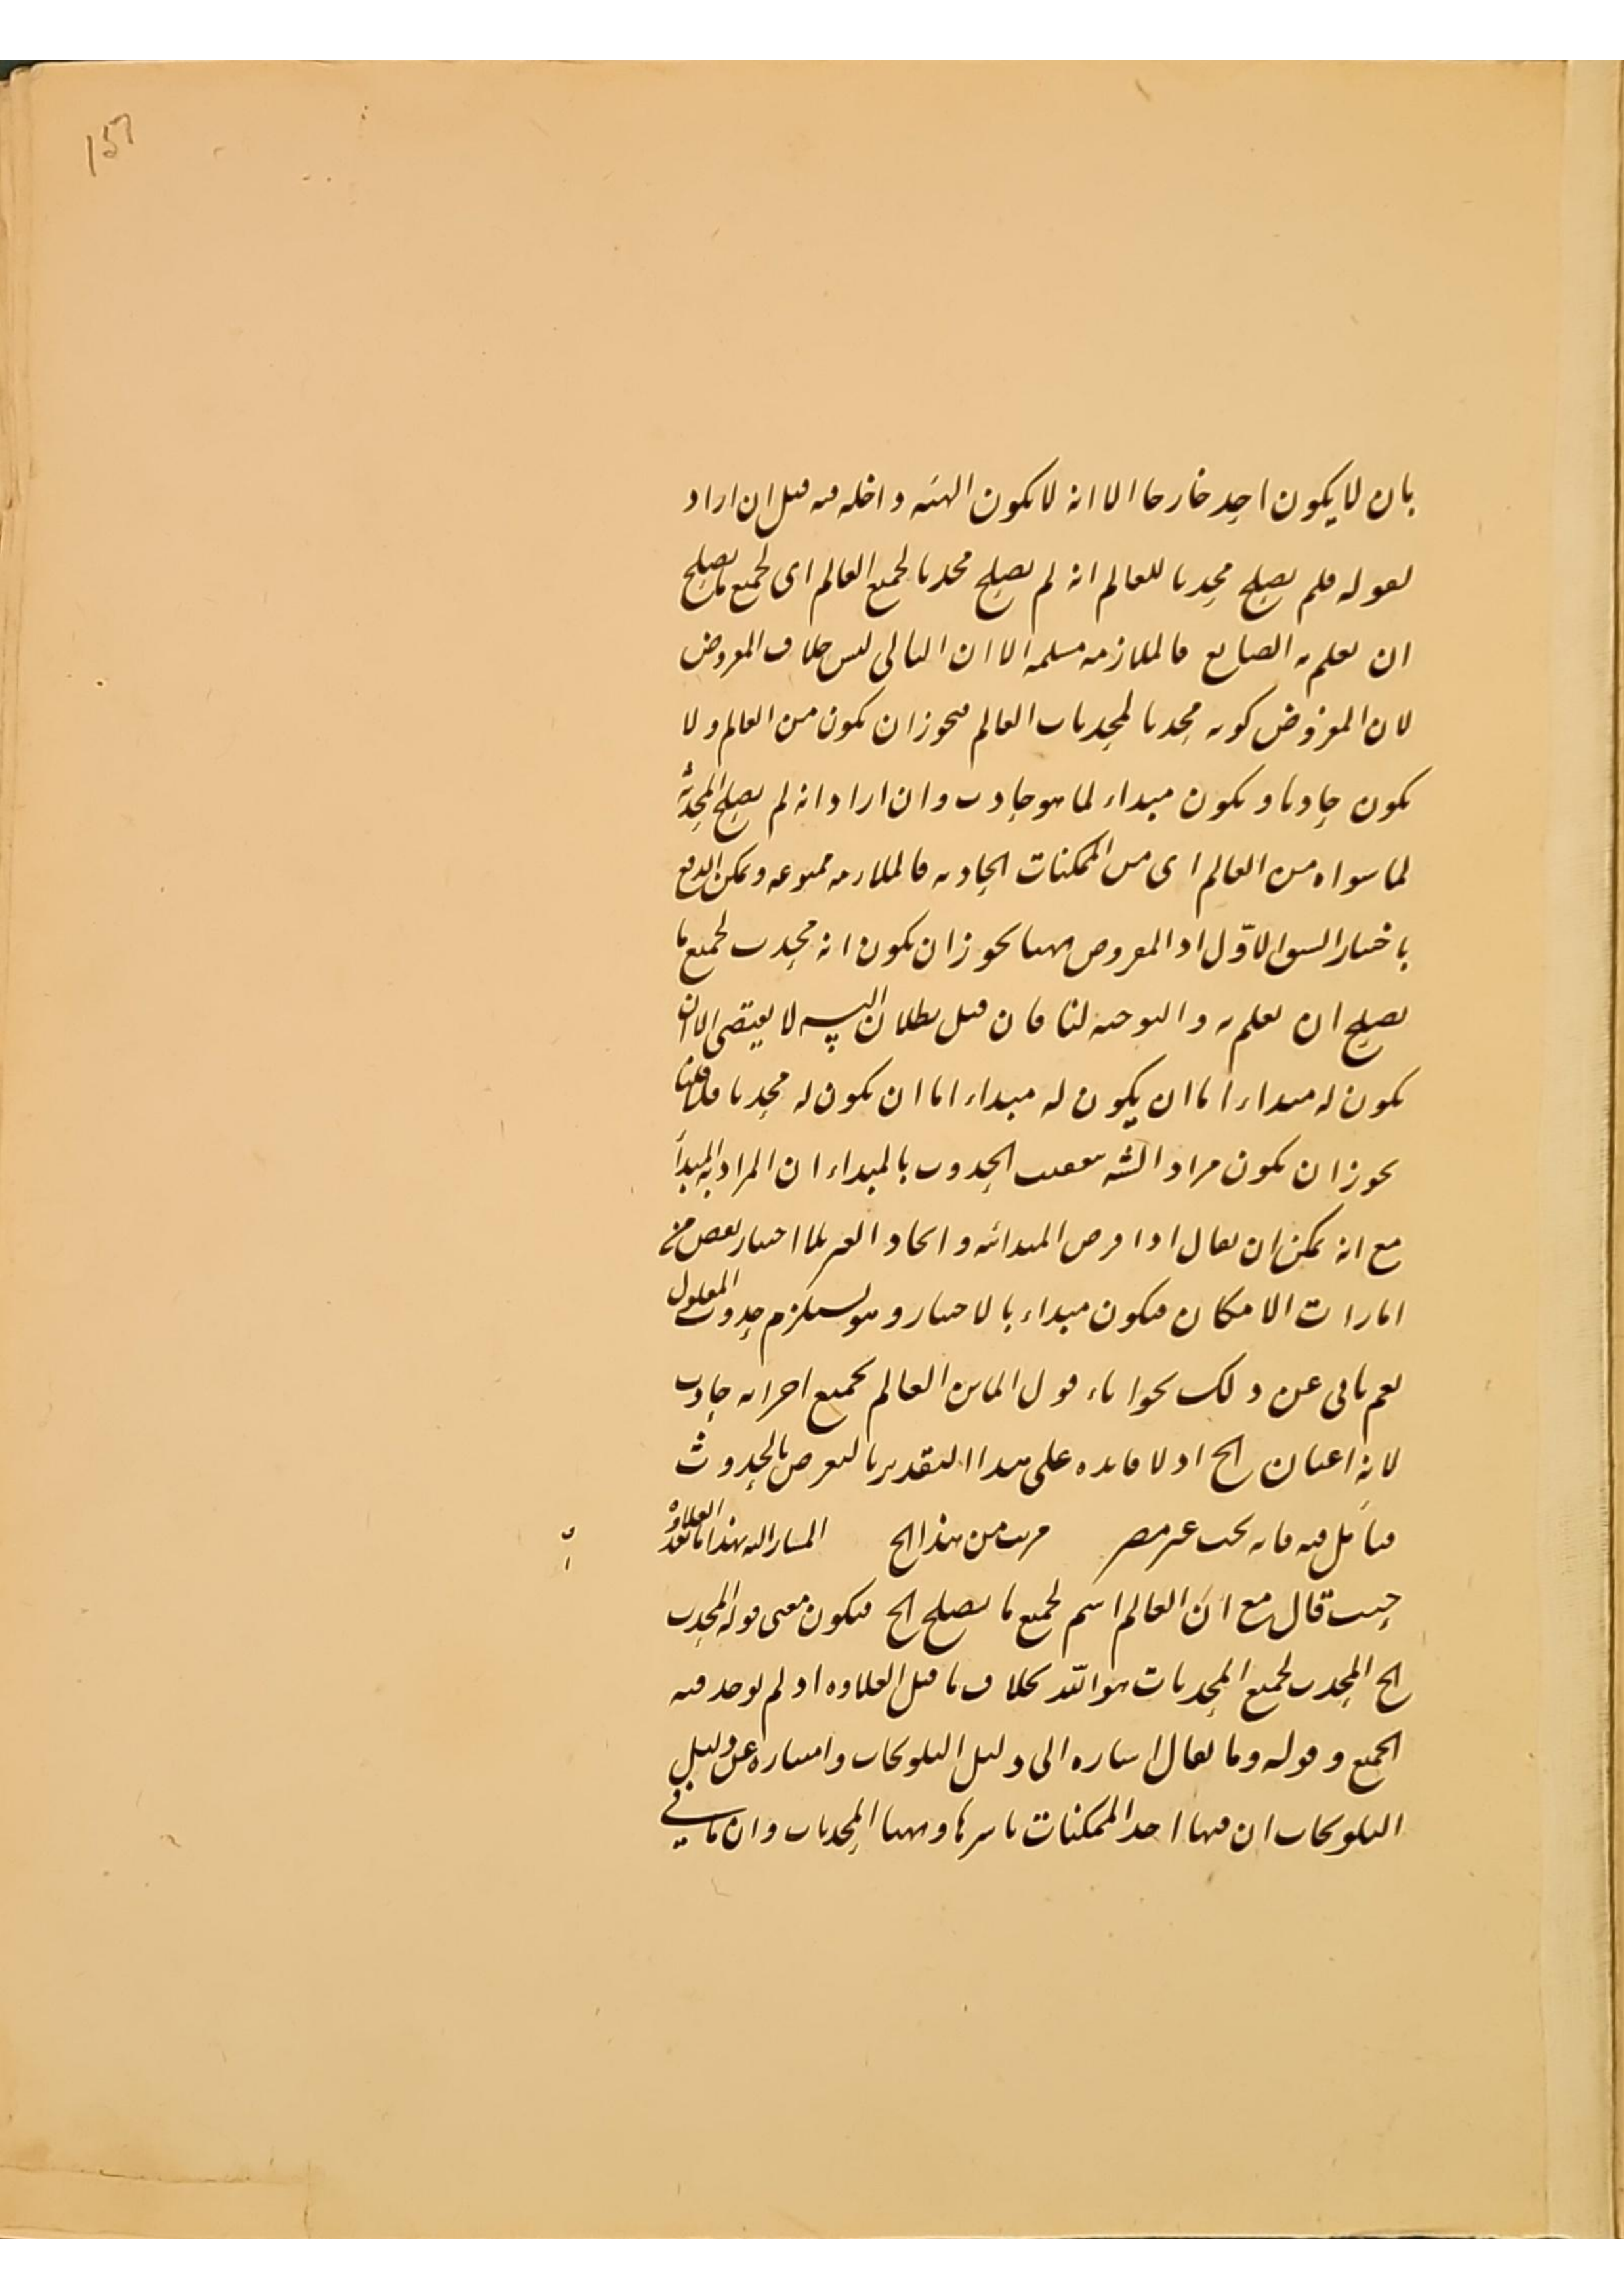 ١٥٦
بان لا يكون احد خارجا الا انه لا يكون الهيئه داخله فيه قيل ان اراد
بقوله فلم يصلح محدثا للعالم انه لم يصلح محدثا لجميع العالم اى لجميع ما يصلح
ان يعلم به الصانع فالملازمه مسلمه الا ان التالى ليس خلاف المفروض
لان المفروض كونه محدثا لمحدثات العالم فيجوز ان يكون من العالم ولا
يكون حادثا ويكون مبداء لما هو حادث وان اراد انه لم يصلح
لما سواه من العالم اى من الممكنات الحادثه فالملازمه ممنوعه ويمكن الدفع
باختيار الشق الاول اذ المفروض ههنا يجوز ان يكون انه محدث لجميع ما
يصلح ان يعلم به والتوجيه لنا فان قيل بطلان التسـ لا يقتضى الا ان
يكون له مبداء اما ان يكون له مبداء اما ان يكون له محدثا فلا قلنا
يجوز ان يكون مراد الشه بعقيب الحدوث بالمبداء ان المراد به المبدأ
مع انه يمكن ان يقال اذا فرض المبدائيه وايجاد الغير بلا اختيار بعض من
امارات الامكان فيكون مبداء بالاختيار وهو يستلزم حدوث المعلول
نعم يابى عن ذلك قول الماتن العالم بجميع اجزائه حادث
لانه اعيان الخ اذ لا فايده على هذا التقدير بالتعرض بالحدوث
فتأمل فيه فانه بحث غير مضر قريب من هذا الخ المشار اليه بهذا ما بعد العلاوه
حيث قال مع ان العالم اسم لجميع ما يصلح الخ فيكون معنى قوله المحدث
الخ المحدث لجميع المحدثات هو الله بخلاف ما قبل العلاوه اذ لم يوجد فيه
الجميع وقوله وما يقال اشاره الى دليل التلويحات وامتيازه عن دليل
التلويحات ان فيها احد الممكنات باسرها وههنا المحدثات وان ما فى